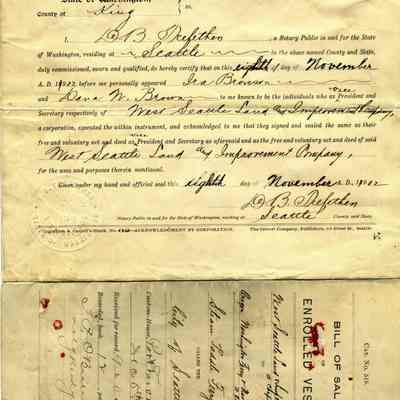 State of Washington,
County of King
I, D B Trefethen, a Notary Public in and for the State
of Washington, residing at Seattle in the above named County and State,
duly commissioned, sworn and qualified, do hereby certify that on this eighth day of November
A. D. 1902 before me personally appeared Ira Bronson
and Dana W. Brown to me known to be the individuals who as President and
Secretary respectively of West Seattle Land and Improvement Company,
a corporation, executed the within instrument, and acknowledged to me that they signed and sealed the same as their
free and voluntary act and deed as President and Secretary as aforesaid and as the free and voluntary act and deed of said
West Seattle Land and Improvement Company,
for the uses and purposes therein mentioned.
Given under my hand and official seal this eighth day of November A. D. 1902
D B Trefethen
Notary Public in and for the State of Washington, residing at Seattle County and State.
ACKNOWLEDGMENT BY CORPORATION.
Cat. No. 519.
BILL OF SALE
ENROLLED VESSEL
West Seattle Land &
Steam Ferry
City of Seattle
Port
Received for record